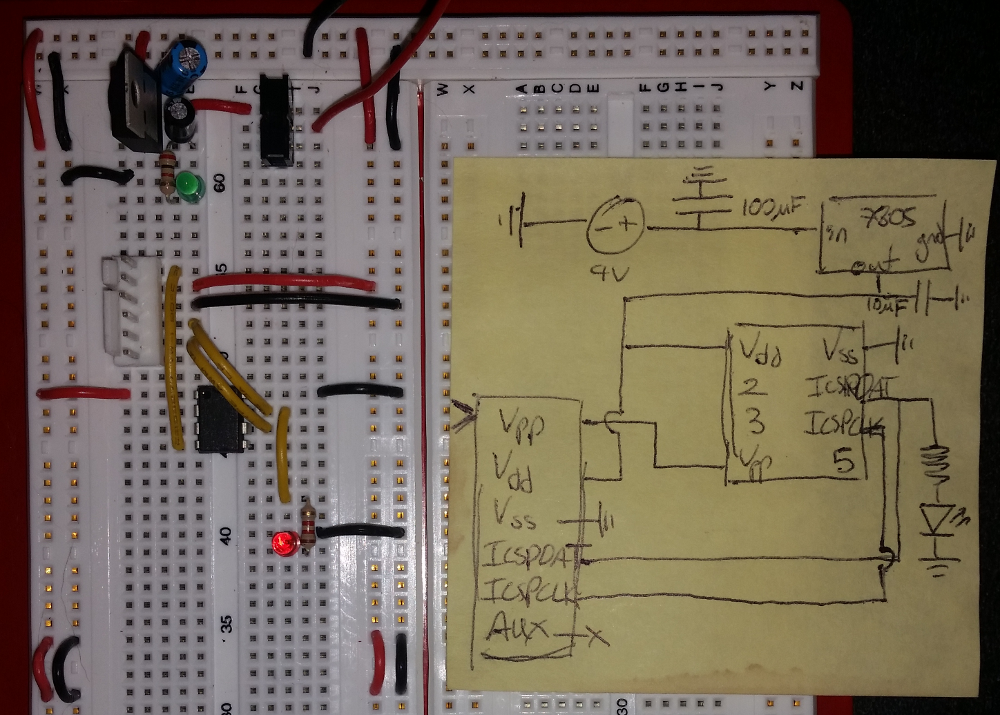 W X A B C D E F G H I J Y Z
F G I J
60
40
35
30
30
100µF
7805
in
gnd
out
9V
10µF
Vdd Vss
2 ICSPDAT
3 ICSPCLK
Vpp 5
Vpp
Vdd
Vss
ICSPDAT
ICSPCLK
AUX X